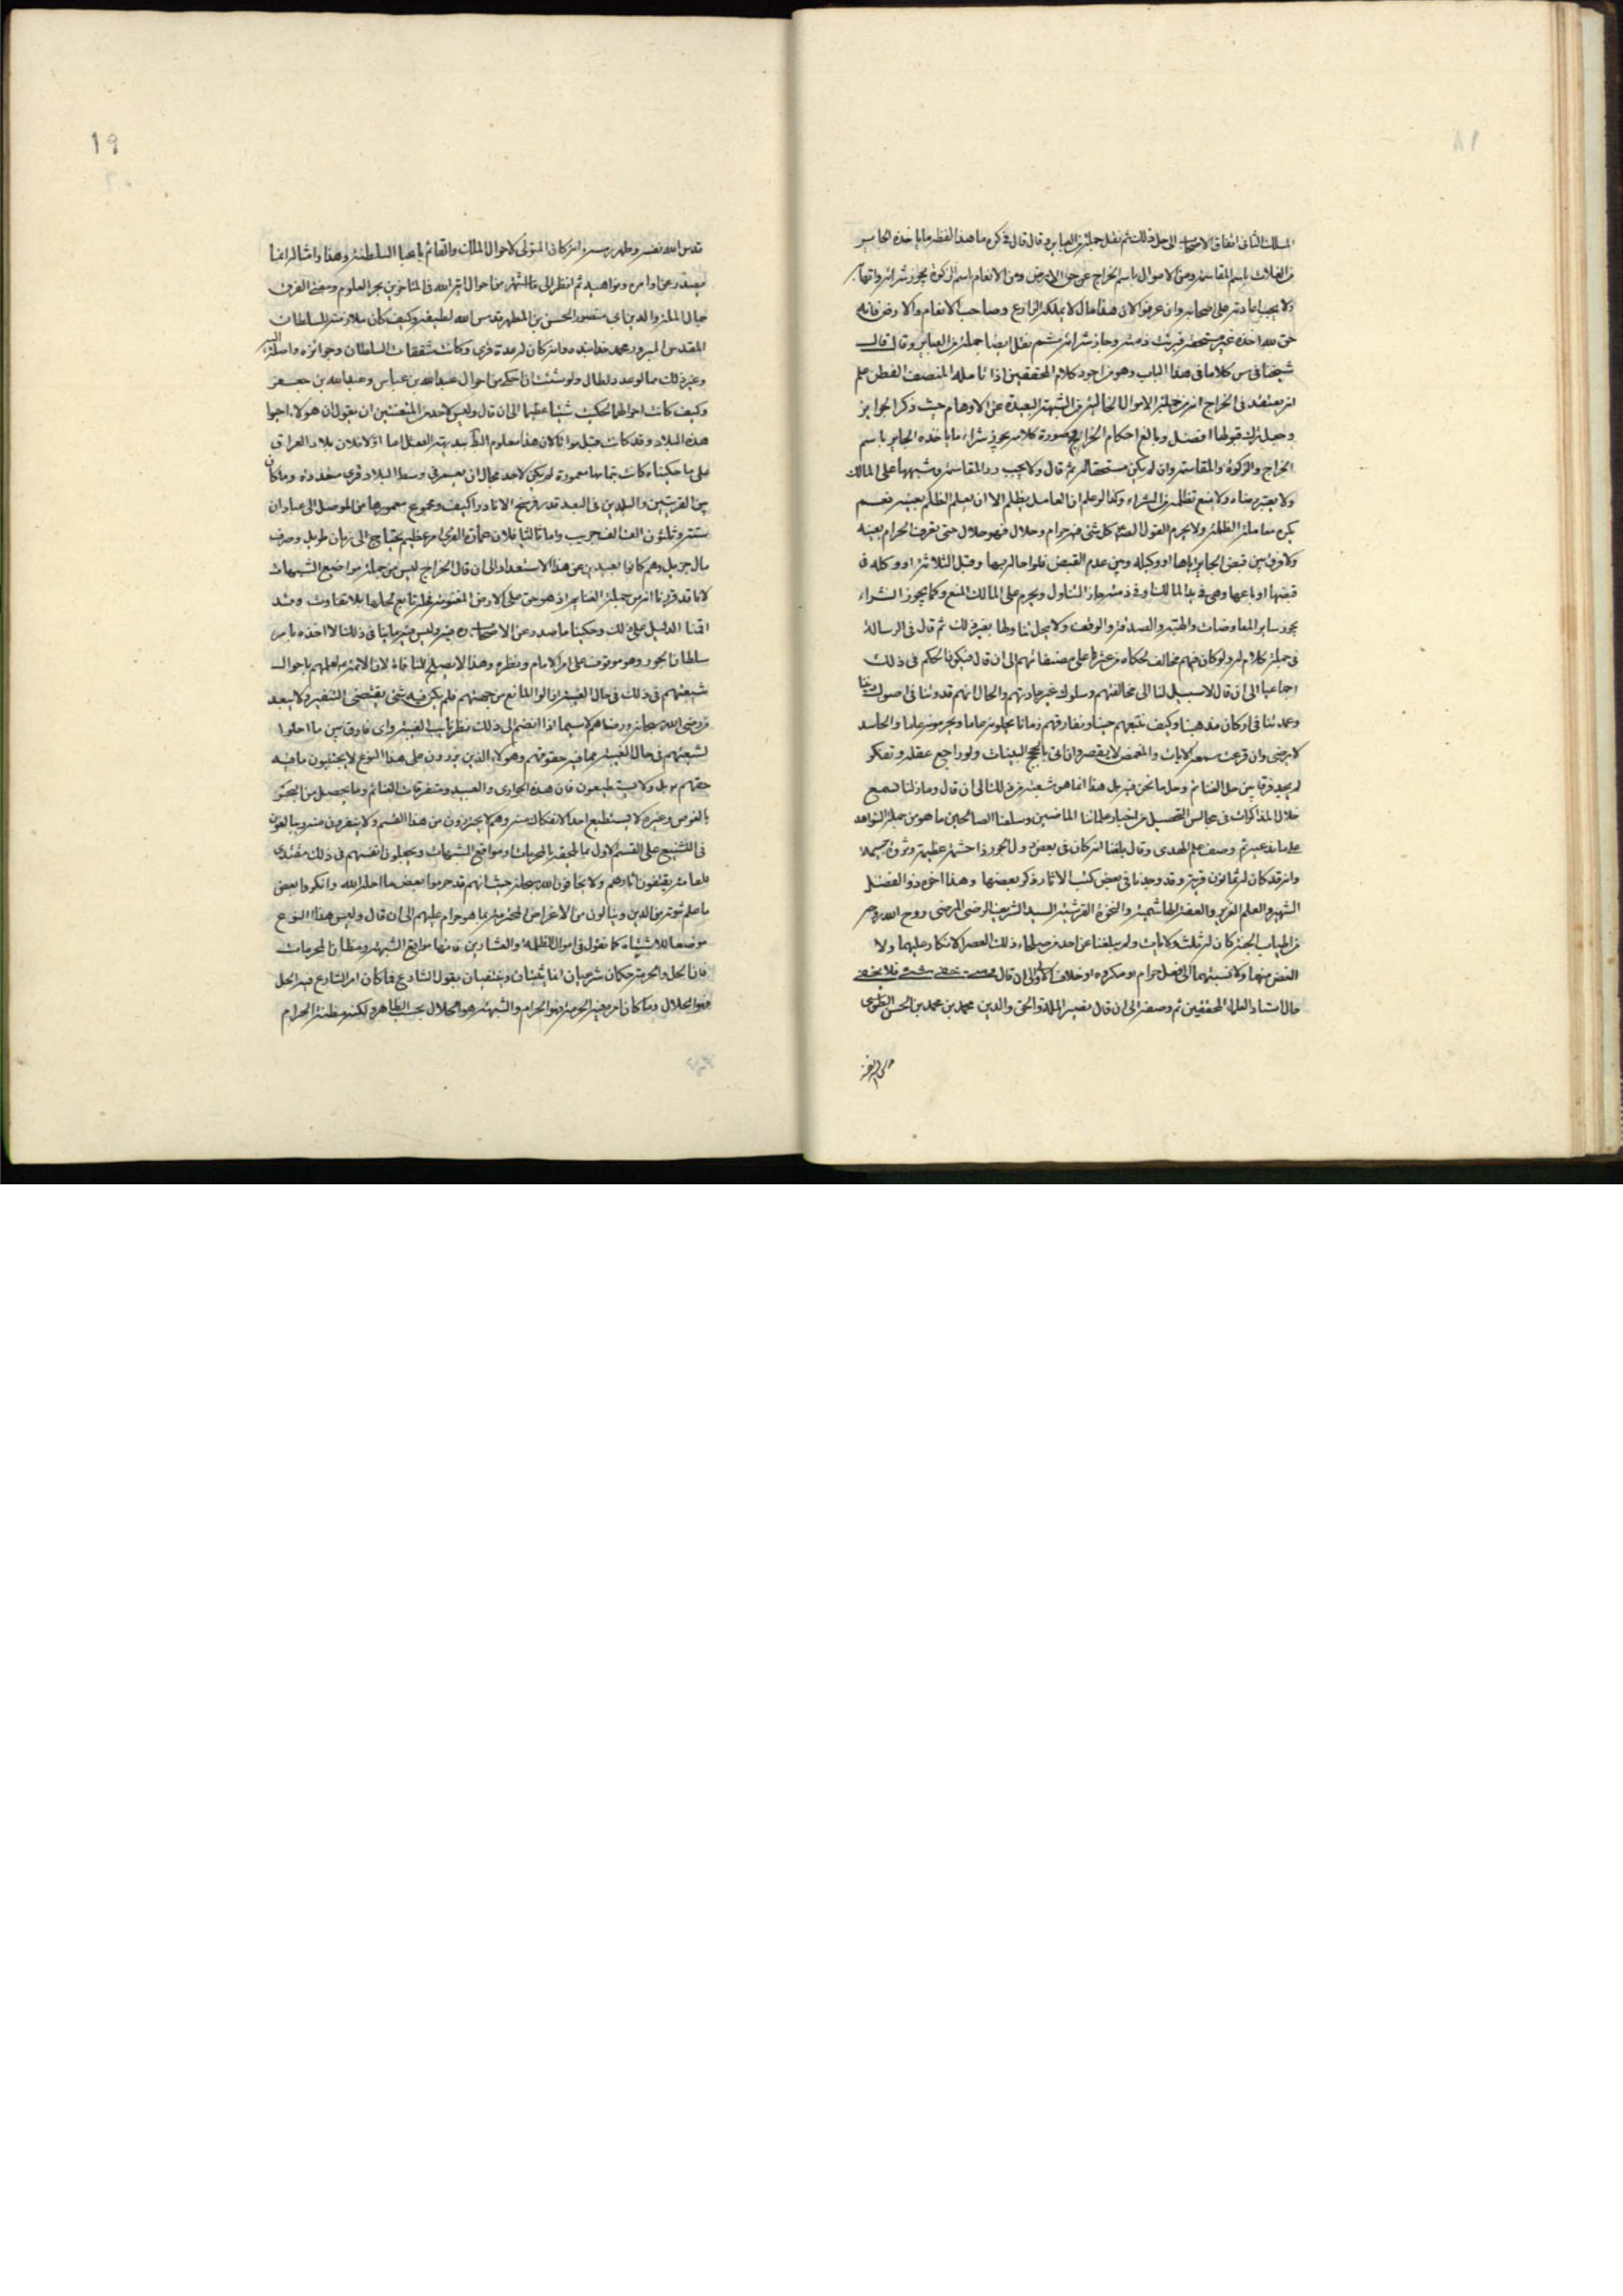 المسلك الثاني اتفاق الاصحاب الى حل ذلك ثم نقل جملة من العباير وقال قال في كره ما هذا لفظه ما ياخذه الجاير
من الغلات باسم المقاسمة ومن الاموال باسم الخراج عن حق الارض ومن الانعام باسم الزكوة يجوز شرائه واتهابه
ولا يجب اعادته على اصحابه وان عرفوا لان هذا مال لا يملكه الزارع وصاحب الانعام والارض فانه
حق لله اخذه غير مستحقه فبرئت ذمته وجاز شرائه ثم نقل ايضا جملة من العباير وقال قال
شيخنا في س كلاما في هذا الباب وهو من اجود كلام المحققين اذا تامله المنصف الفطن علم
انه يعتقد في الخراج انه من جملة الاموال الخالية من الشبهة البعيدة عن الاوهام حيث ذكر الجوايز
وجعل ترك قبولها افضل وبالغ احكام الخراج في صورة كلامه يجوز شراء ما ياخذه الجاير باسم
الخراج والزكوة والمقاسمة وان لم يكن مستحقا له ثم قال ولا يجب رد المقاسمة وشبهها على المالك
ولا يعتبر رضاه ولا يمنع تظلمه من الشراء وكذا لو علم ان العامل يظلم الا ان يعلم الظلم بعينه نعم
يكره معاملة الظلمة ولا يحرم لقول الصادق كل شئ فيه حرام وحلال فهو حلال حتى تعرف الحرام بعينه
ولا فرق بين قبض الجاير اياها او وكيله وبين عدم القبض فلو احاله بها وقبل الثلاثة او وكله في
قبضها او باعها وهي في يد المالك او في ذمته جاز التناول ويحرم على المالك المنع وكما يجوز الشراء
يجوز ساير المعاوضات والهبة والصدقة والوقف ولا يحل تناولها بغير ذلك ثم قال في الرسالة
في جملة كلام له ولو كان فيهم مخالف لحكاه من عثرنا على مصنفاتهم الى ان قال فيكون الحكم في ذلك
اجماعيا الى ان قال لا سبيل لنا الى مخالفتهم وسلوك غير جادتهم والحال انهم قدوتنا في اصول ديننا
وعمدتنا في اركان مذهبنا وكيف نتبعهم حينا ونفارقهم زمانا يحلونه عاما ويحرمونه عاما والحاسد
لا يرضى وان قرعت سمعه الايات والمغمض لا يبصر وان اتي بالحجج البينات ولو راجع عقله وتفكر
لم يجد فرقا بين حل الغنائم وحل ما نحن فيه بل هذا انما هو شعبة من ذلك الى ان قال وما زلنا نسمع
خلال المذاكرات في مجالس التحصيل من اخبار علمائنا الماضين وسلفنا الصالحين ما هو من جملة الشواهد
على ما ندعيه ثم وصف علم الهدى وقال بلغنا انه كان في بعض دول الجور ذا حشمة عظيمة وثروة جسيمة
وانه قد كان له ثمانون قرية وقد وجدنا في بعض كتب الاثار ذكر بعضها وهذا اخوه ذو الفضل
الشهير والعلم الغزير والعفة الهاشمية والنخوة القرشية السيد الشريف الرضي المرضي روح الله روحه
من اطياب الجنة كان له ثلث ولايات ولم يبلغنا عن احد من صلحاء ذلك العصر الانكار عليهما ولا
الغض منهما ولا نسبتهما الى فعل حرام او مكروه او خلاف الاولى الى ان قال ومهما خفي شئ فلا يخفى
حال استاد العلماء المحققين ثم وصفه الى ان قال نصير الملة والحق والدين محمد بن محمد بن الحسن الطوسي
قدس الله نفسه وطهر رمسه وانه كان المتولي لاحوال الملك والقائم باعباء السلطنة وهذا وامثاله انما
يصدر عن اوامره ونواهيه ثم انظر الى ما اشتهر من احوال اية الله في المتاخرين بحر العلوم ومفتي الفرق
جمال الملة والدين ابي منصور الحسن بن المطهر قدس الله لطيفه وكيف كان ملازمته للسلطان
المقدس المبرور محمد خدابنده وانه كان له عدة قرى وكانت شفقات السلطان وجوائزه واصلة اليه
وغير ذلك مما لو عدد لطال ولو شئت ان احكي من احوال عبدالله بن عباس وعبدالله بن جعفر
وكيف كانت احوالهما لحكيت شيئا عظيما الى ان قال وليس لاحد من المتعنتين ان يقول ان هولاء احيوا
هذه البلاد وقد كانت قبل مواتا لان هذا معلوم البطلان ببديهة العقل اما اولا فلان بلاد العراق
على ما حكيناه كانت بتمامها معمورة لم يكن لاحد مجال ان يعمر في وسط البلاد قرى متعددة وما كان
بين القريتين والبلدين في البعد قدر فرسخ الا نادرا كيف ومجموع معمورها من الموصل الى عبادان
ستة وثلثون الف الف جريب واما ثالثا فلان عمارة القرى امر عظيم يحتاج الى زمان طويل وصرف
مال جزيل وهم كانوا بعيدين عن هذا الاستعداد الى ان قال الخراج ليس من جملة مواضع الشبهات
لانا قد قررنا انه من جملة الغنايم اذ هو حق على الارض المغنومة فحله تابع لحلها بلا تفاوت وقد
اقمنا الدليل على ذلك وحكينا ما صدر عن الاصحاب ره فيه وليس فيه ما ينافي ذلك الا اخذه بامر
سلطان الجور وهو موقوف على امر الامام ونظره وهذا لا يصلح للمنافاة لان الائمة مع علمهم باحوال
شيعتهم في ذلك في حال الغيبة ازالوا المانع من جهتهم فلم يكن فيه شئ يقتضي التنفير ولا يبعد
من رضى الله سبحانه ورضاهم لا سيما اذا انضم الى ذلك نظر نايب الغيبة واي فارق بين ما احلوا
لشيعتهم في حال الغيبة مما فيه حقوقهم وهولاء الذين يزرون على هذا النوع لا يجتنبون ما فيه
حقهم بل ولا يستطيعون فان هذه الجواري والعبيد ومتفرقات الغنائم وما يحصل من البحر
بالغوص وغيره لا يستطيع احد الانفكاك منه وهم لا يحترزون من هذا القسم ولا ينفرون منه ويبالغون
في التشنيع على القسم الاول بالتحقير بالحرمات ومواقع الشبهات ويجعلون انفسهم في ذلك مقتدى
للعامة يقتفون اثارهم ولا يخافون الله سبحانه حيث انهم قد حرموا بعض ما احله الله وانكروا بعض
ما علم ثبوته من الدين وينالون من الاعراض المحرمة بما هو حرام عليهم الى ان قال وليس هذا النوع
موضعا للاشتباه كما نقول في اموال الظلمة والعشارين فانها مواقع الشبهة ومظان المحرمات
فان الحل والحرمة حكمان شرعيان انما يثبتان وينتفيان بقول الشارع فما كان امر الشارع فيه الحل
فهو الحلال وما كان امره فيه الحرمة فهو الحرام والشبهة هو الحلال بحسب الظاهر ولكنه مظنة الحرام
19